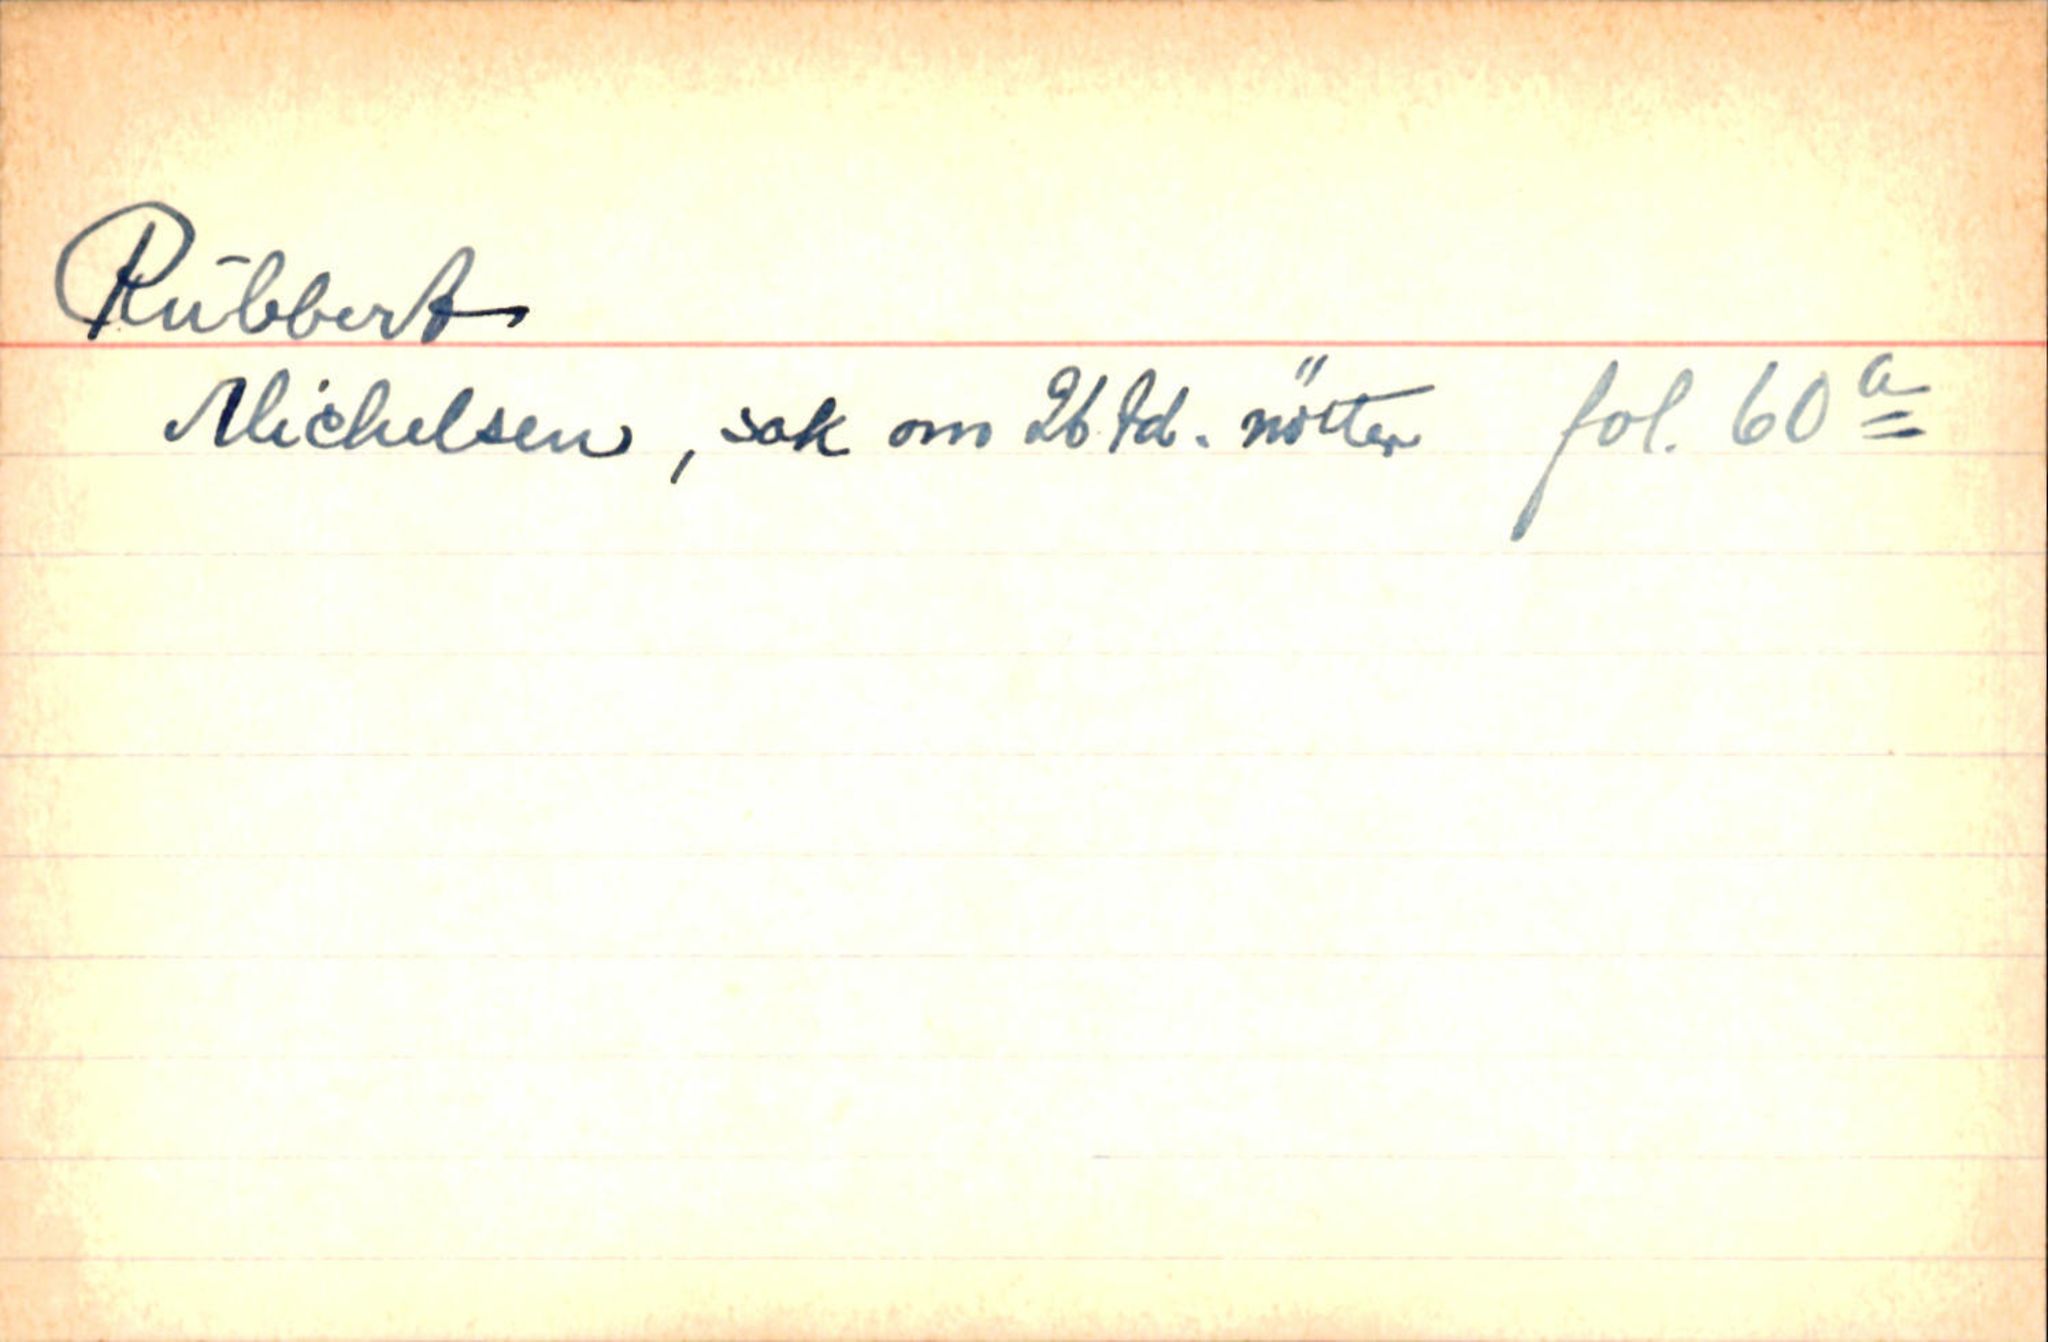 Rübbert
Michelsen, sak om 26 td. nötter fol. 60 a